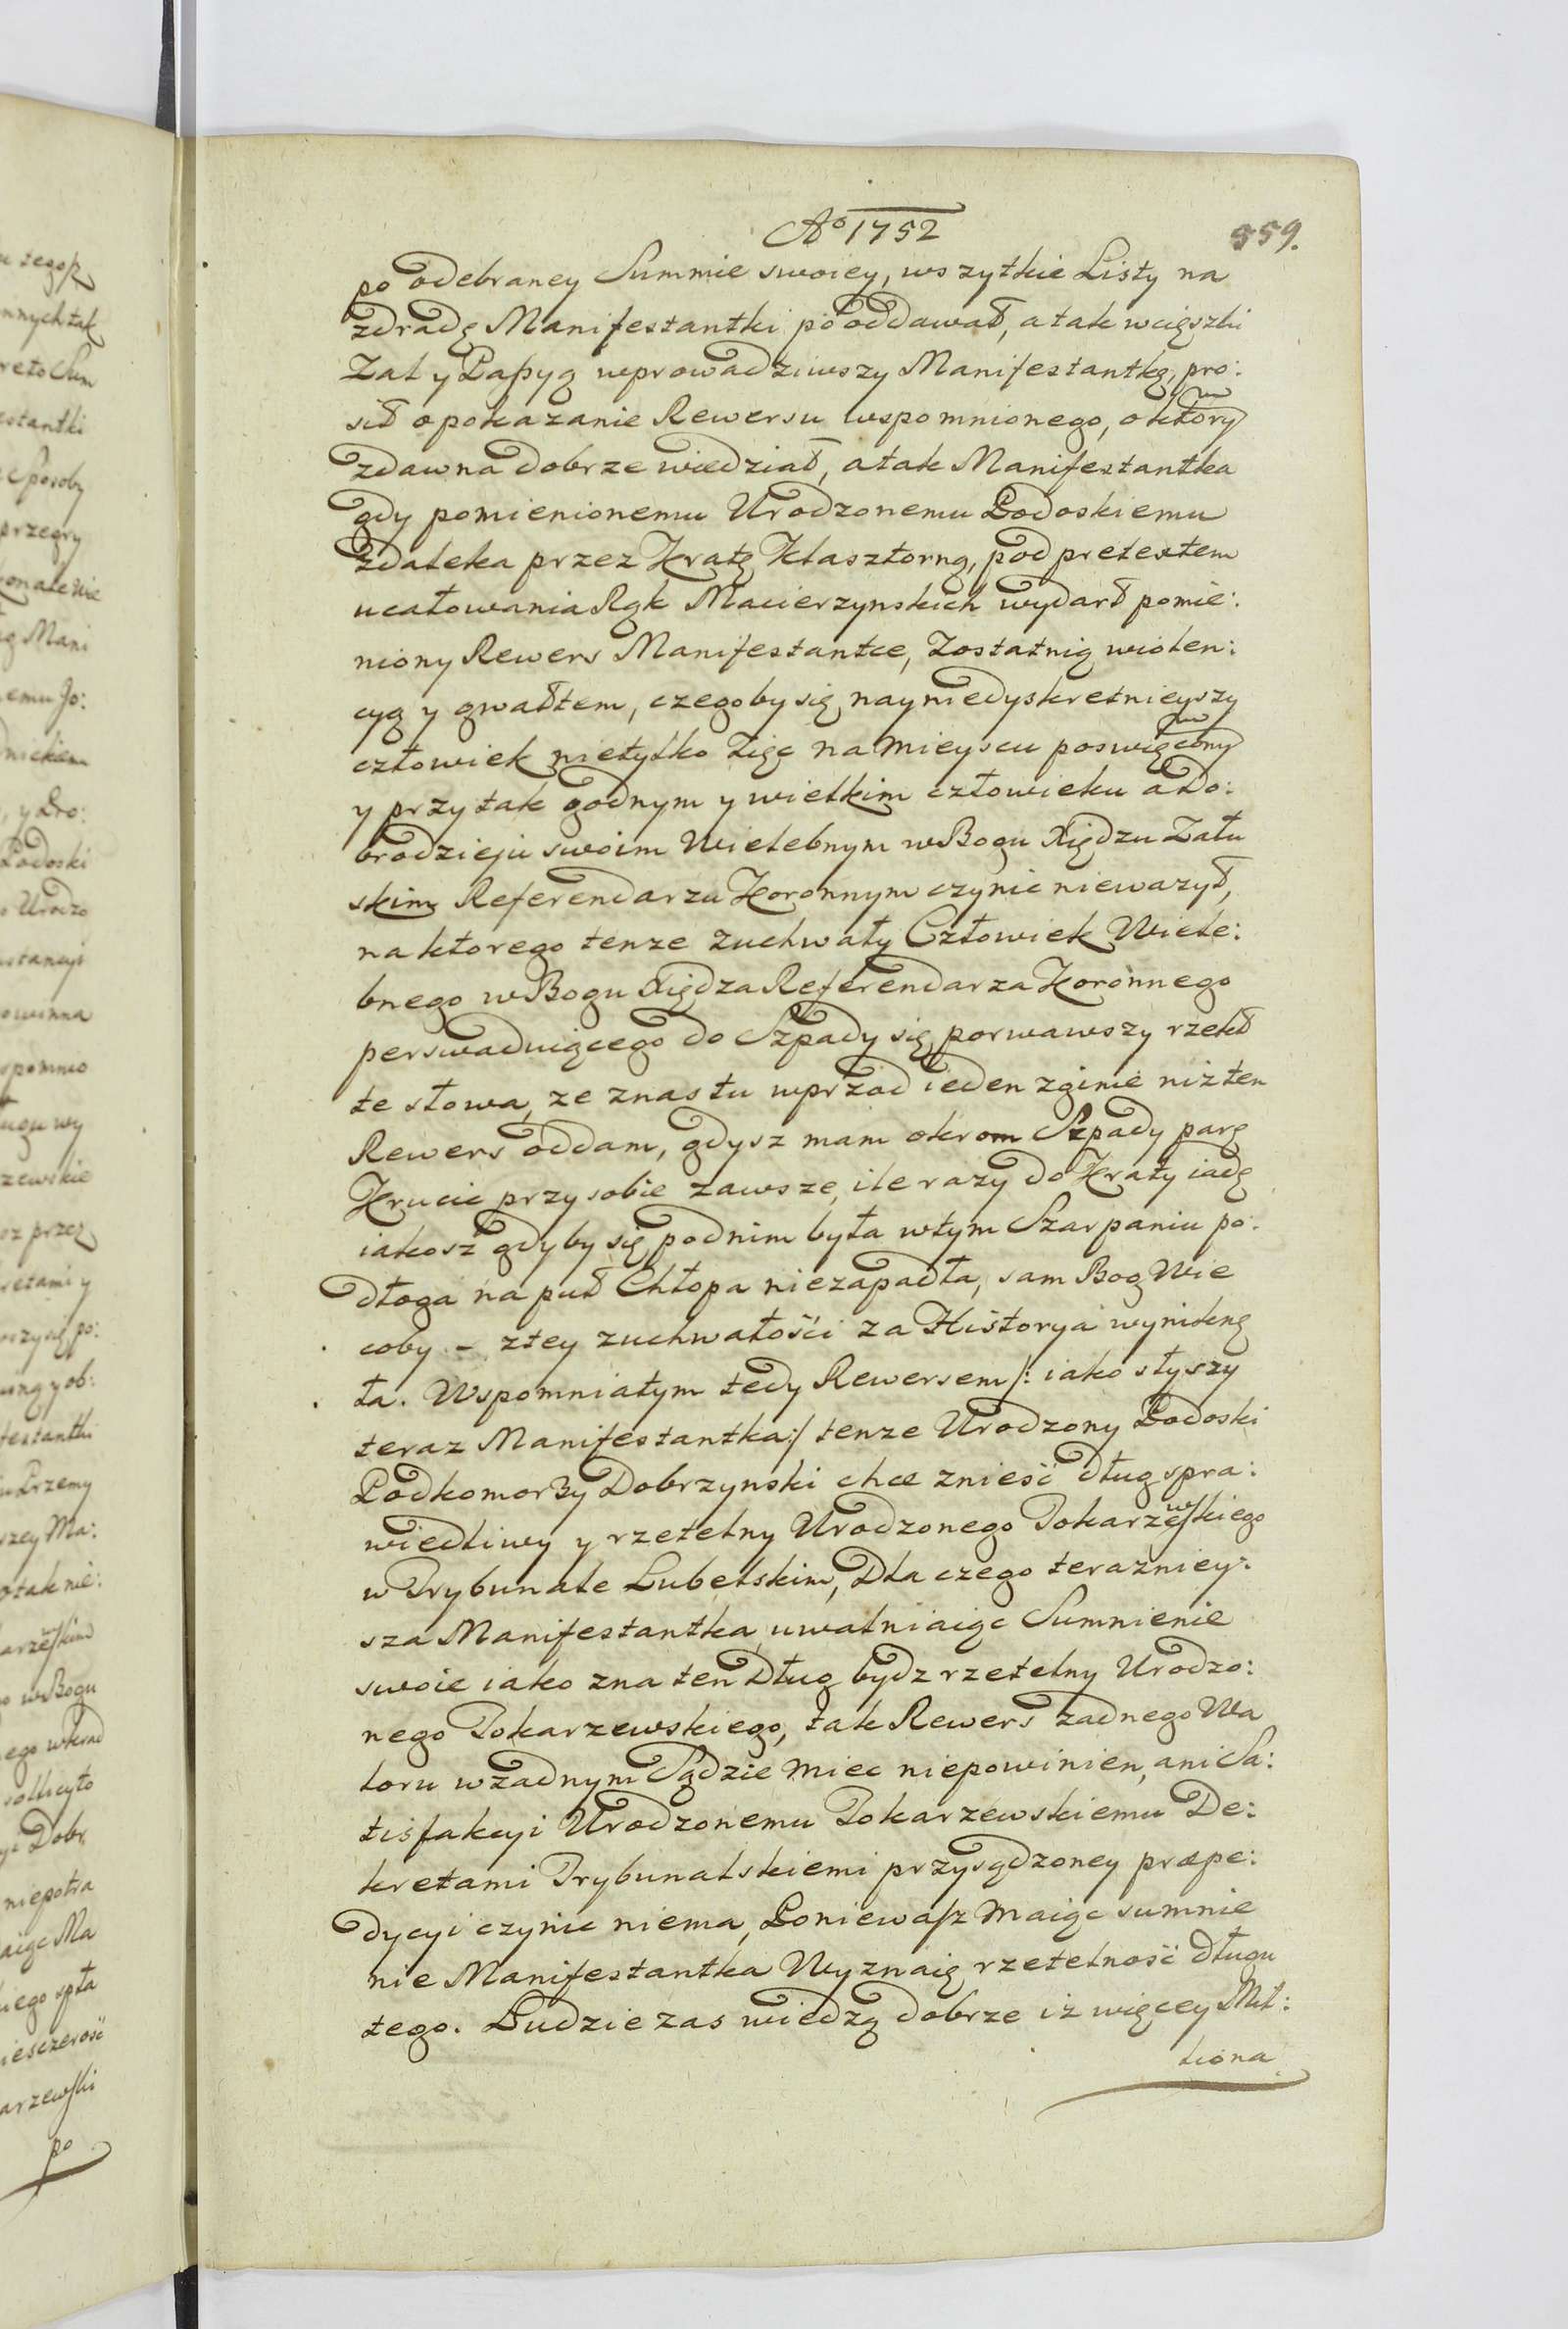 Aº 1752
559.
po odebraney Summie swoiey, wszytkie Listy na
zdradę Manifestantki pooddawał, a tak wcięszki
Zal y Passyą wprowadziwszy Manifestantkę, pro:
sił o pokazanie Rewersu wspomnionego, o ktorym
zdawna dobrze wiedział, atak Manifestantka
gdy pomienionemu Urodzonemu Podoskiemu
zdaleka przez Kratę Klasztorną, pod pretextem
ucałowania Rąk Macierzynskich wydarł pomie:
niony Rewers Manifestantce, Zostatnią wiolen:
cyą y gwałtem, czegoby się nayniedyskretnieyszy
człowiek nietylko Zięc na mieyscu poswięconym
y przy tak godnym y wielkim człowieku a Do:
brodzieju swoim Wielebnym w Bogu Xiędzu Zału
skim Referendarzu Koronnym czynic niewazył,
na ktorego tenze zuchwały Człowiek Wiele:
bnego w Bogu Xiędza Referendarza Koronnego
perswaduiącego do Szpady się porwawszy rzekł
te słowa, ze znas tu wprzod ieden zginie niz ten
Rewers oddam, gdysz mam okrom Szpady parę
Krucic przy sobie zawsze, ile razy do Kraty iadę
iakosz gdyby się podnim była wtym Szarpaniu po:
dłoga na puł Chłopa niezapadła, sam Bog Wie
coby - ztey zuchwałości za Historya wyniknę
ła. Wspomniałym tedy Rewersem /: iako słyszy
teraz Manifestantka :/ tenze Urodzony Podoski
Podkomorzy Dobrzynski chce znieść dług spra:
wiedliwy y rzetelny Urodzonego Tokarzewskiego
w Trybunale Lubelskim, Dla czego terazniey:
sza Manifestantka, uwalniaiąc Sumnienie
swoie iako zna ten Dług bydz rzetelny Urodzo:
nego Tokarzewskiego, tak Rewers zadnego Wa
loru wzadnym Sądzie miec niepowinien, ani Sa:
tisfakcyi Urodzonemu Tokarzewskiemu De:
kretami Trybunalskiemi przysądzoney præpe:
dycyi czynic niema, Poniewasz maiąc sumnie
nie Manifestantka Wyznaię rzetelność długu
tego. Ludzie zas wiedzą dobrze iż więcey Mil:
liona